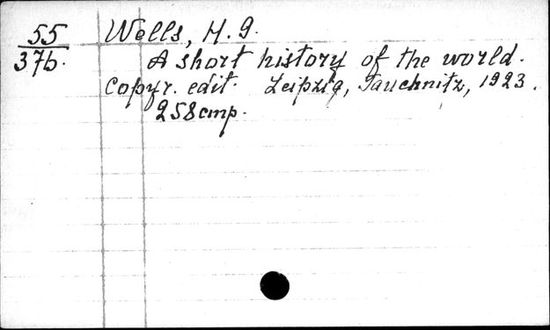 55
376.
Wells, H. G.
A short history of the world.
Copyr. edit. Leipzig, Tauchnitz, 1923.
258 стр.